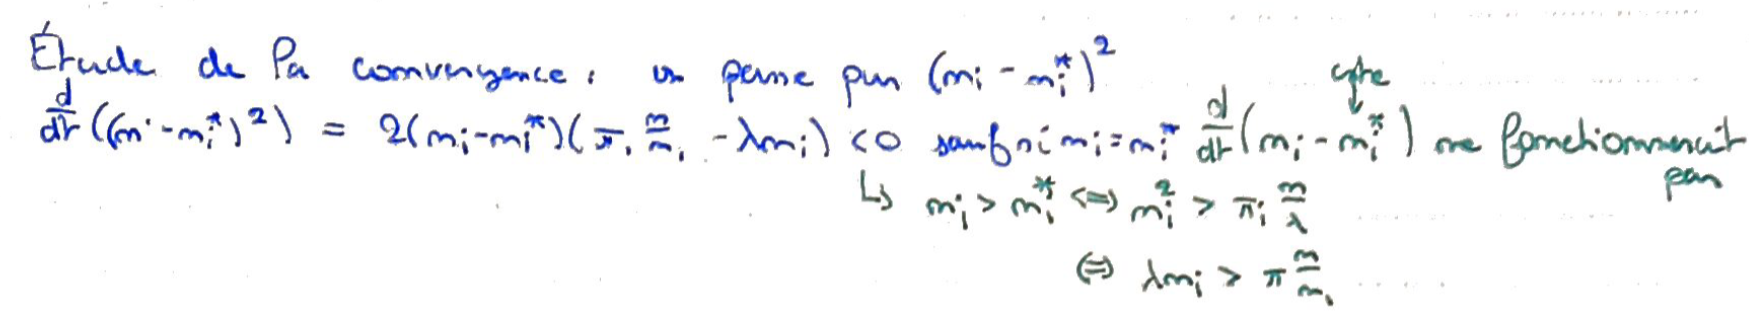 Étude de la convergence : on passe par (m_i - m_i^*)^2
cste
d/dt ((m_i - m_i^*)^2) = 2(m_i - m_i^*)(π_i m/m_i - λm_i) < 0 sauf si m_i = m_i^* d/dt (m_i - m_i^*) ne fonctionnerait pas
↳ m_i > m_i^* ⇔ m_i^2 > π_i m/λ
⇔ λm_i > π m/m_i